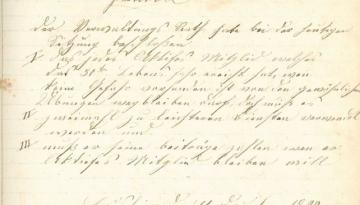 Der Verwaltungs Rath hat bei der heutigen
Sitzung beschlossen
I Das jedes Aktiefes Mitglied welches
Das 50te Lebens Jahr erreicht hat, wen
keine Gefahr vorhanden ist von den gewöhnlichen
Übungen wegbleiben darf, doch muß er
II zweimahl zu leichteren Diensten verwendet
werden und
III muß er seine beiträge zahlen wen er
Aktiefes Mitglied bleiben will